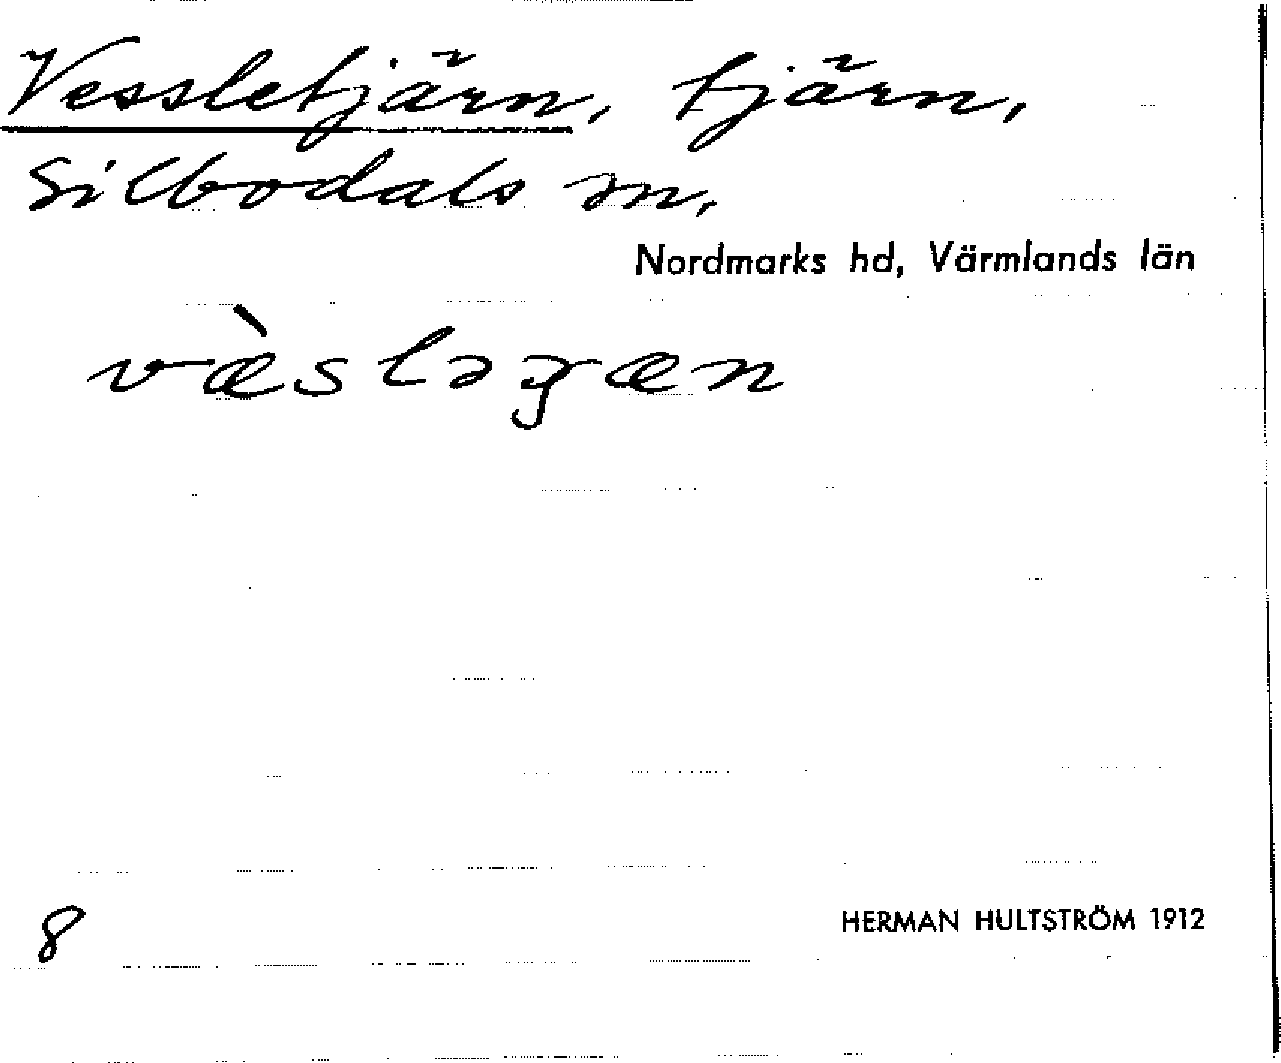 Vessletjärn, tjärn,
Silbodals sn,
Nordmarks hd, Värmlands län
væ̀sləꝗæn
8
HERMAN HULTSTRÖM 1912